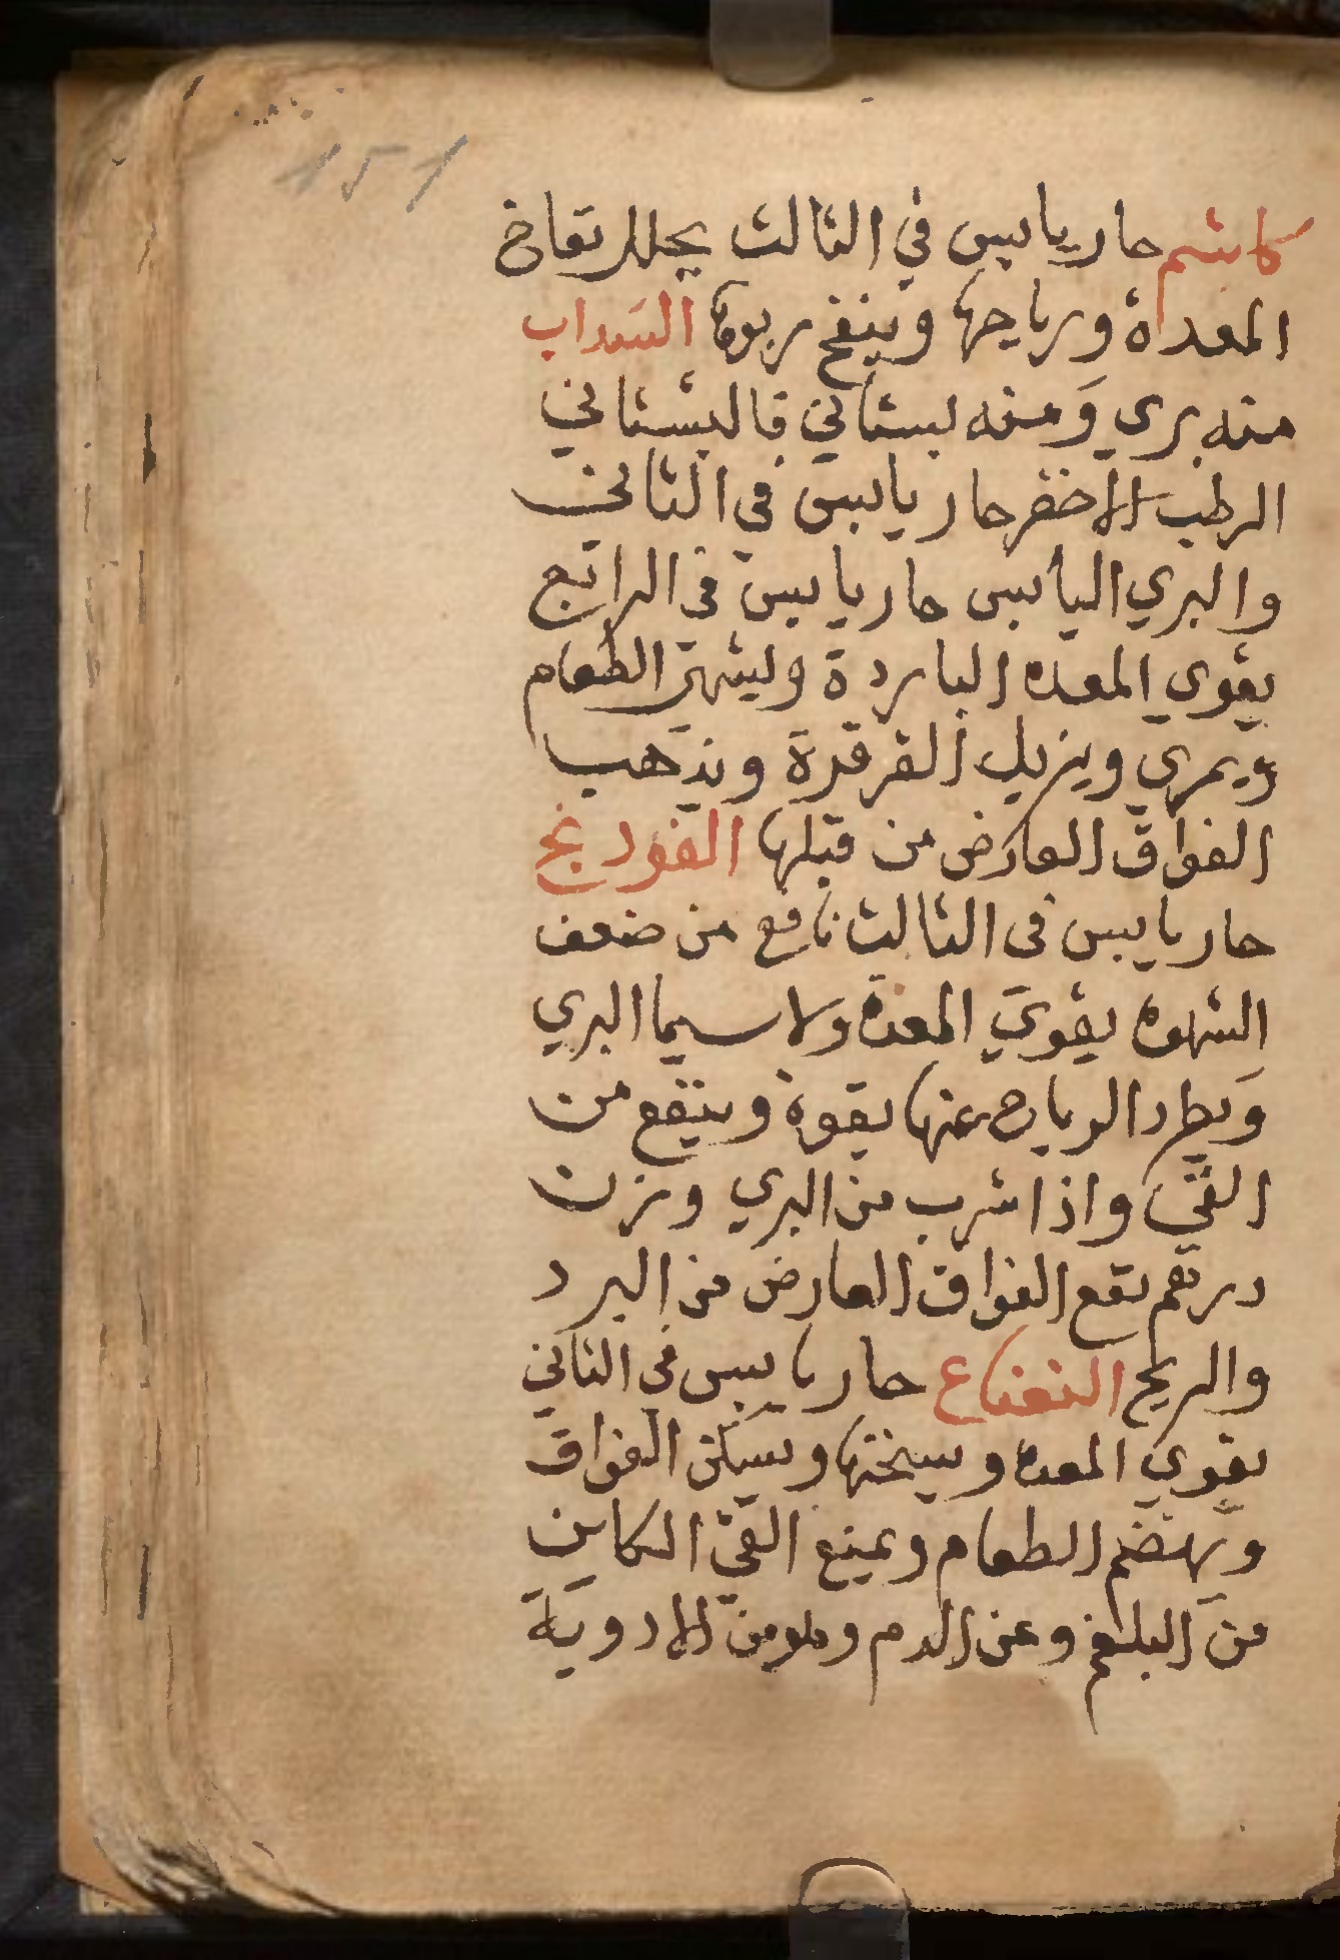 151
كاشم حار يابس في الثالث يحلل نفاخ
المعداة ورياحها وينفخ ربوها السداب
منه بري ومنه بستاني فالبستاني
الرطب الاخضر حار يابس في الثاني
والبري اليابس حار يابس في الرابع
يقوي المعده الباردة ويشهي الطعام
ويمري ويزيل القرقرة ويذهب
الفواق العارض من قبلها الفودنج
حار يابس في الثالث نافع من ضعف
الشهوه يقوي المعدة ولاسيما البري
ويطرد الرياح عنها بقوة وينفع من
القي واذا شرب من البري وزن
درهم نفع الفواق العارض من البرد
والريح النعناع حار يابس في الثاني
يقوي المعده ويسخنها ويسكن الفواق
ويهضم الطعام ويمنع القي الكاين
من البلغم وعن الدم وهو من الادوية